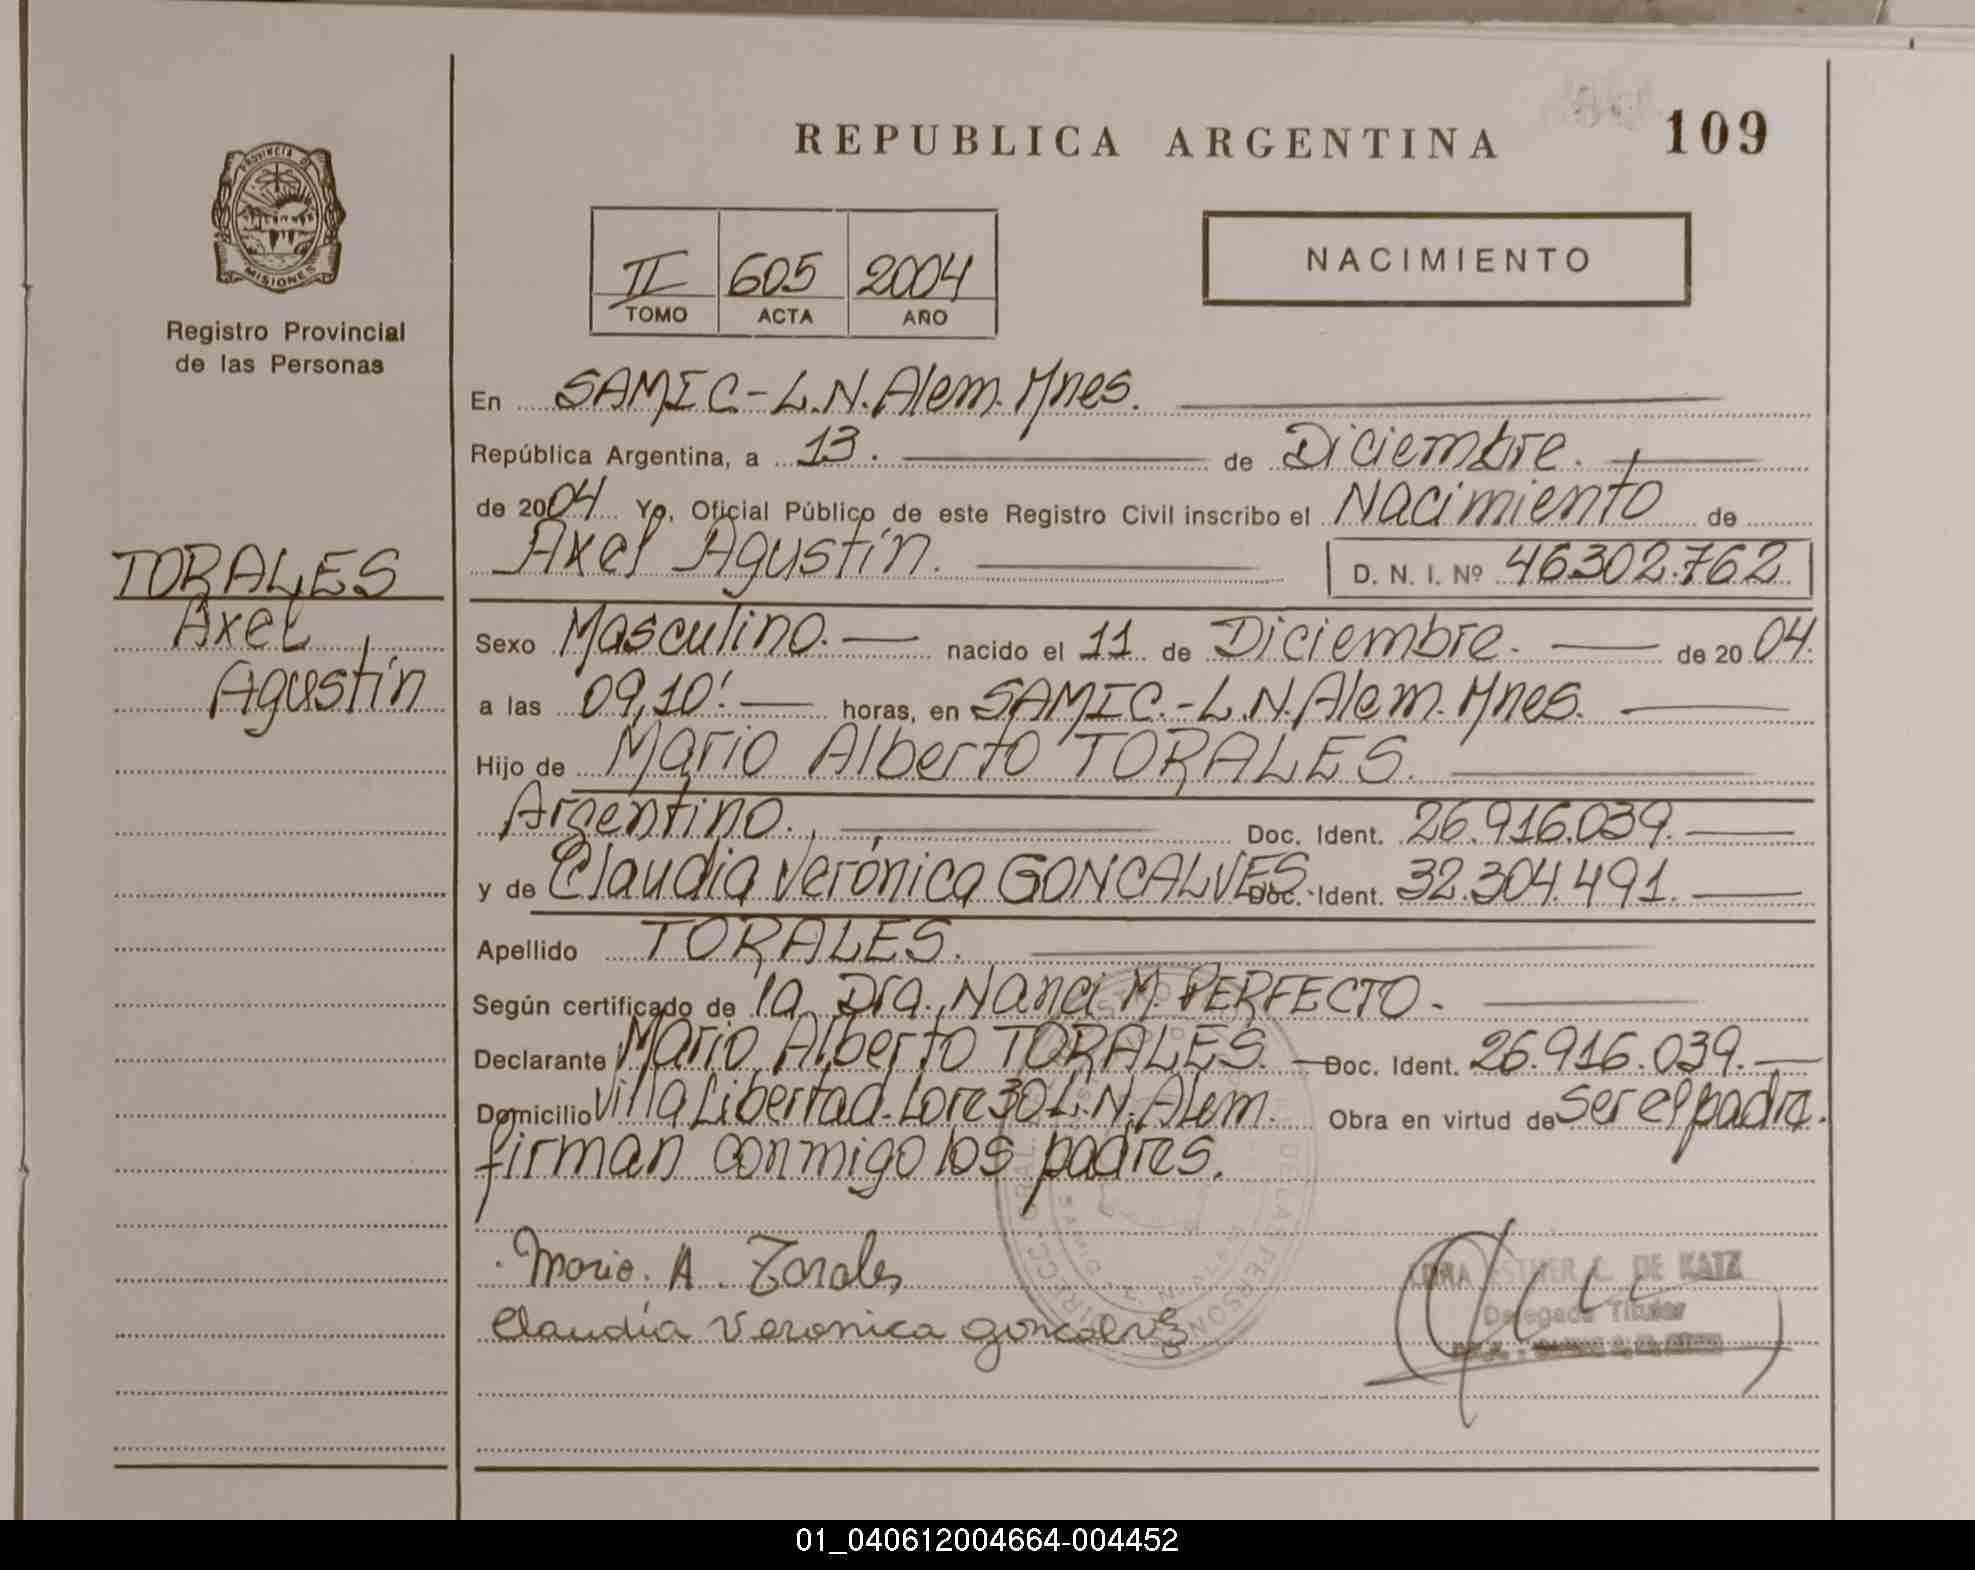 REPUBLICA ARGENTINA
109
PROVINCIA DE
MISIONES
Registro Provincial
de las Personas
II 605 2004
TOMO ACTA AÑO
NACIMIENTO
En SAMIC.-L.N.Alem. Mnes.
República Argentina, a 13. de Diciembre.
de 2004 Yo, Oficial Público de este Registro Civil inscribo el Nacimiento de
Axel Agustín. D. N. I. Nº 46302.762
TORALES
Axel
Agustín
Sexo Masculino. nacido el 11 de Diciembre. de 2004.
a las 09,10'. horas, en SAMIC.-L.N.Alem. Mnes.
Hijo de Mario Alberto TORALES.
Argentino. Doc. Ident. 26.916.039.
y de Claudia Verónica GONCALVES. Doc. Ident. 32.304.491.
Apellido TORALES.
Según certificado de la Dra. Nanci M. PERFECTO.
Declarante Mario Alberto TORALES. Doc. Ident. 26.916.039.
Domicilio Villa Libertad. Lote 30 L.N.Alem. Obra en virtud de Ser el padre.
firman conmigo los padres.
Mario. A. Torales
Claudia Veronica goncalvez
ESTHER L. DE KATZ
Delegada Titular
01_040612004664-004452